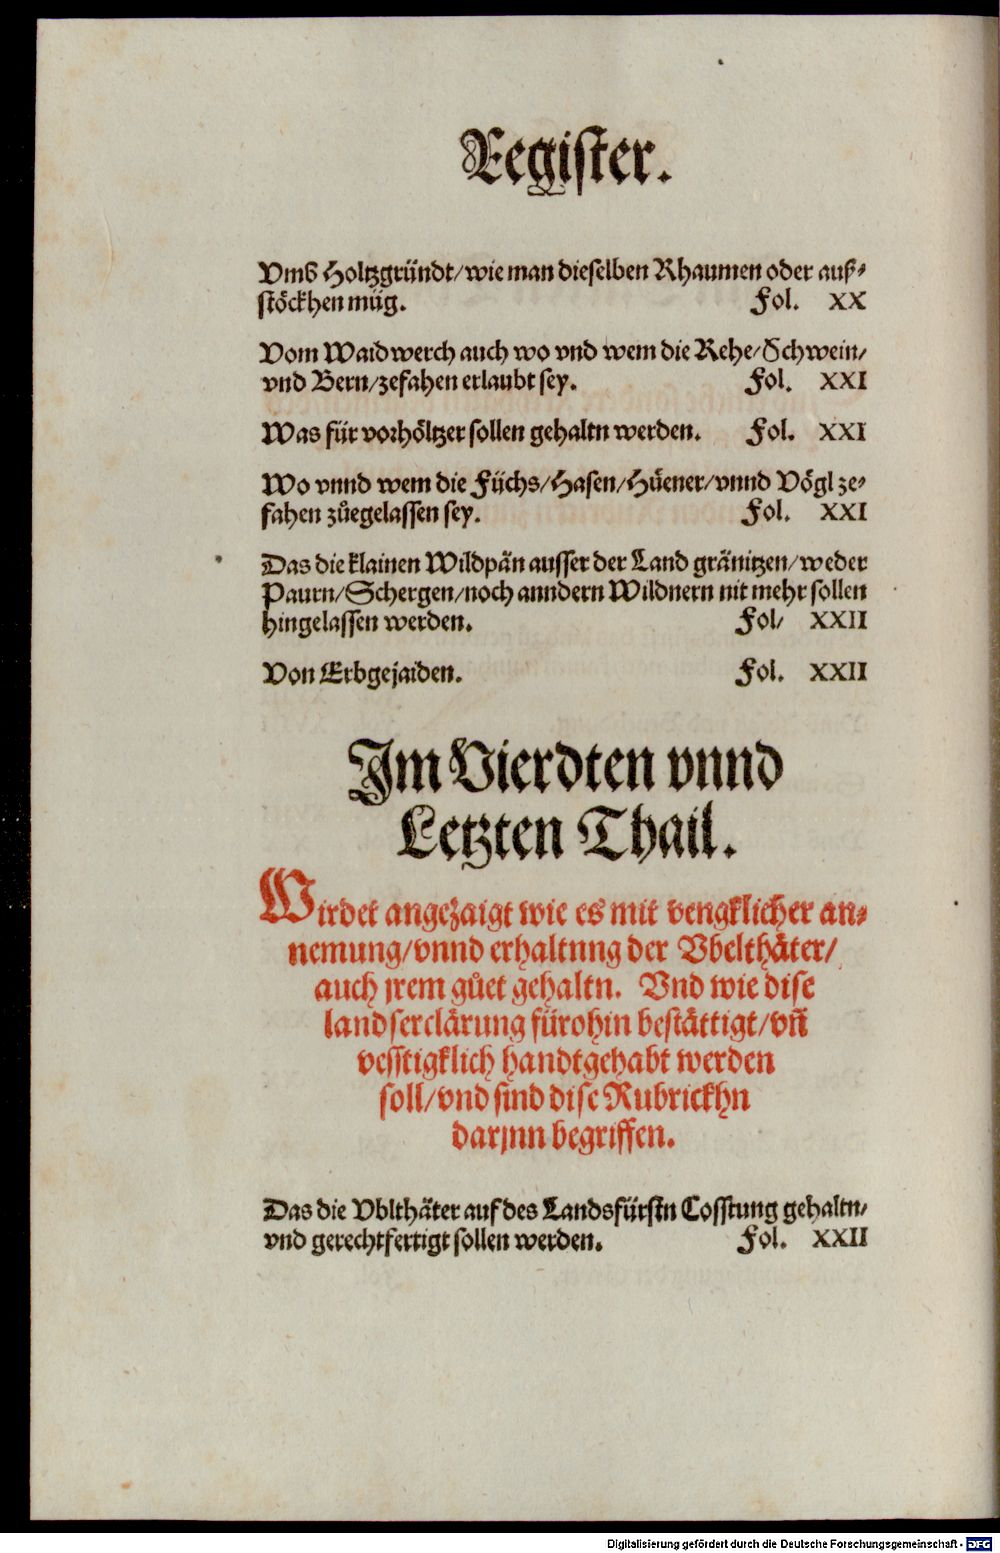 Register.
Vmb Holtzgründt/wie man dieselben Rhaumen oder auß⸗
stöckhen müg. Fol. XX
Vom Waidwerch auch wo vnd wem die Rehe/Schwein/
vnd Bern/zefahen erlaubt sey. Fol. XXI
Was für vorhöltzer sollen gehaltn werden. Fol. XXI
Wo vnnd wem die Füchs/Hasen/Hüener/vnnd Vögl ze⸗
fahen zůegelassen sey. Fol. XXI
Das die klainen Wildpän ausser der Land gränitzen/weder
Paurn/Schergen/noch anndern Wildnern nit mehr sollen
hingelassen werden. Fol/ XXII
Von Erbgejaiden. Fol. XXII
Im Vierdten vnnd
Letzten Thail.
Wirdet angezaigt wie es mit vengklicher an⸗
nemung/vnnd erhaltnng der Vbelthäter/
auch jrem gůet gehaltn. Vnd wie dise
landserclärung fürohin bestättigt/vñ
vesstigklich handtgehabt werden
soll/vnd sind dise Rubrickhn
darjnn begriffen.
Das die Vblthäter auf des Landsfürstn Cosstung gehaltn/
vnd gerechtfertigt sollen werden. Fol. XXII
Digitalisierung gefördert durch die Deutsche Forschungsgemeinschaft - DFG